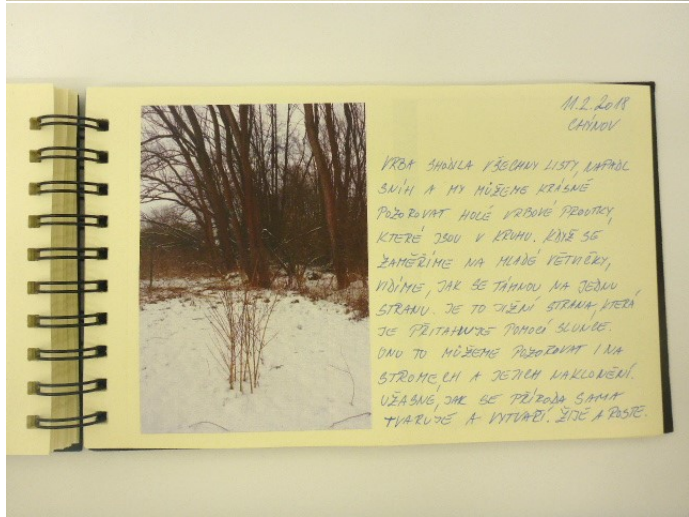 11.2.2018
CHÝNOV
VRBA SHODILA VŠECHNY LISTY, NAPADL
SNÍH A MY MŮŽEME KRÁSNĚ
POZOROVAT HOLÉ VRBOVÉ PROUTKY,
KTERÉ JSOU V KRUHU. KDYŽ SE
ZAMĚŘÍME NA MLADÉ VĚTVIČKY,
VIDÍME, JAK SE TÁHNOU NA JEDNU
STRANU. JE TO JIŽNÍ STRANA, KTERÁ
JE PŘITAHUJE POMOCÍ SLUNCE.
ONO TO MŮŽEME POZOROVAT I NA
STROMECH A JEJICH NAKLONĚNÍ.
ÚŽASNÉ, JAK SE PŘÍRODA SAMA
TVARUJE A VYTVÁŘÍ. ŽIJE A ROSTE.